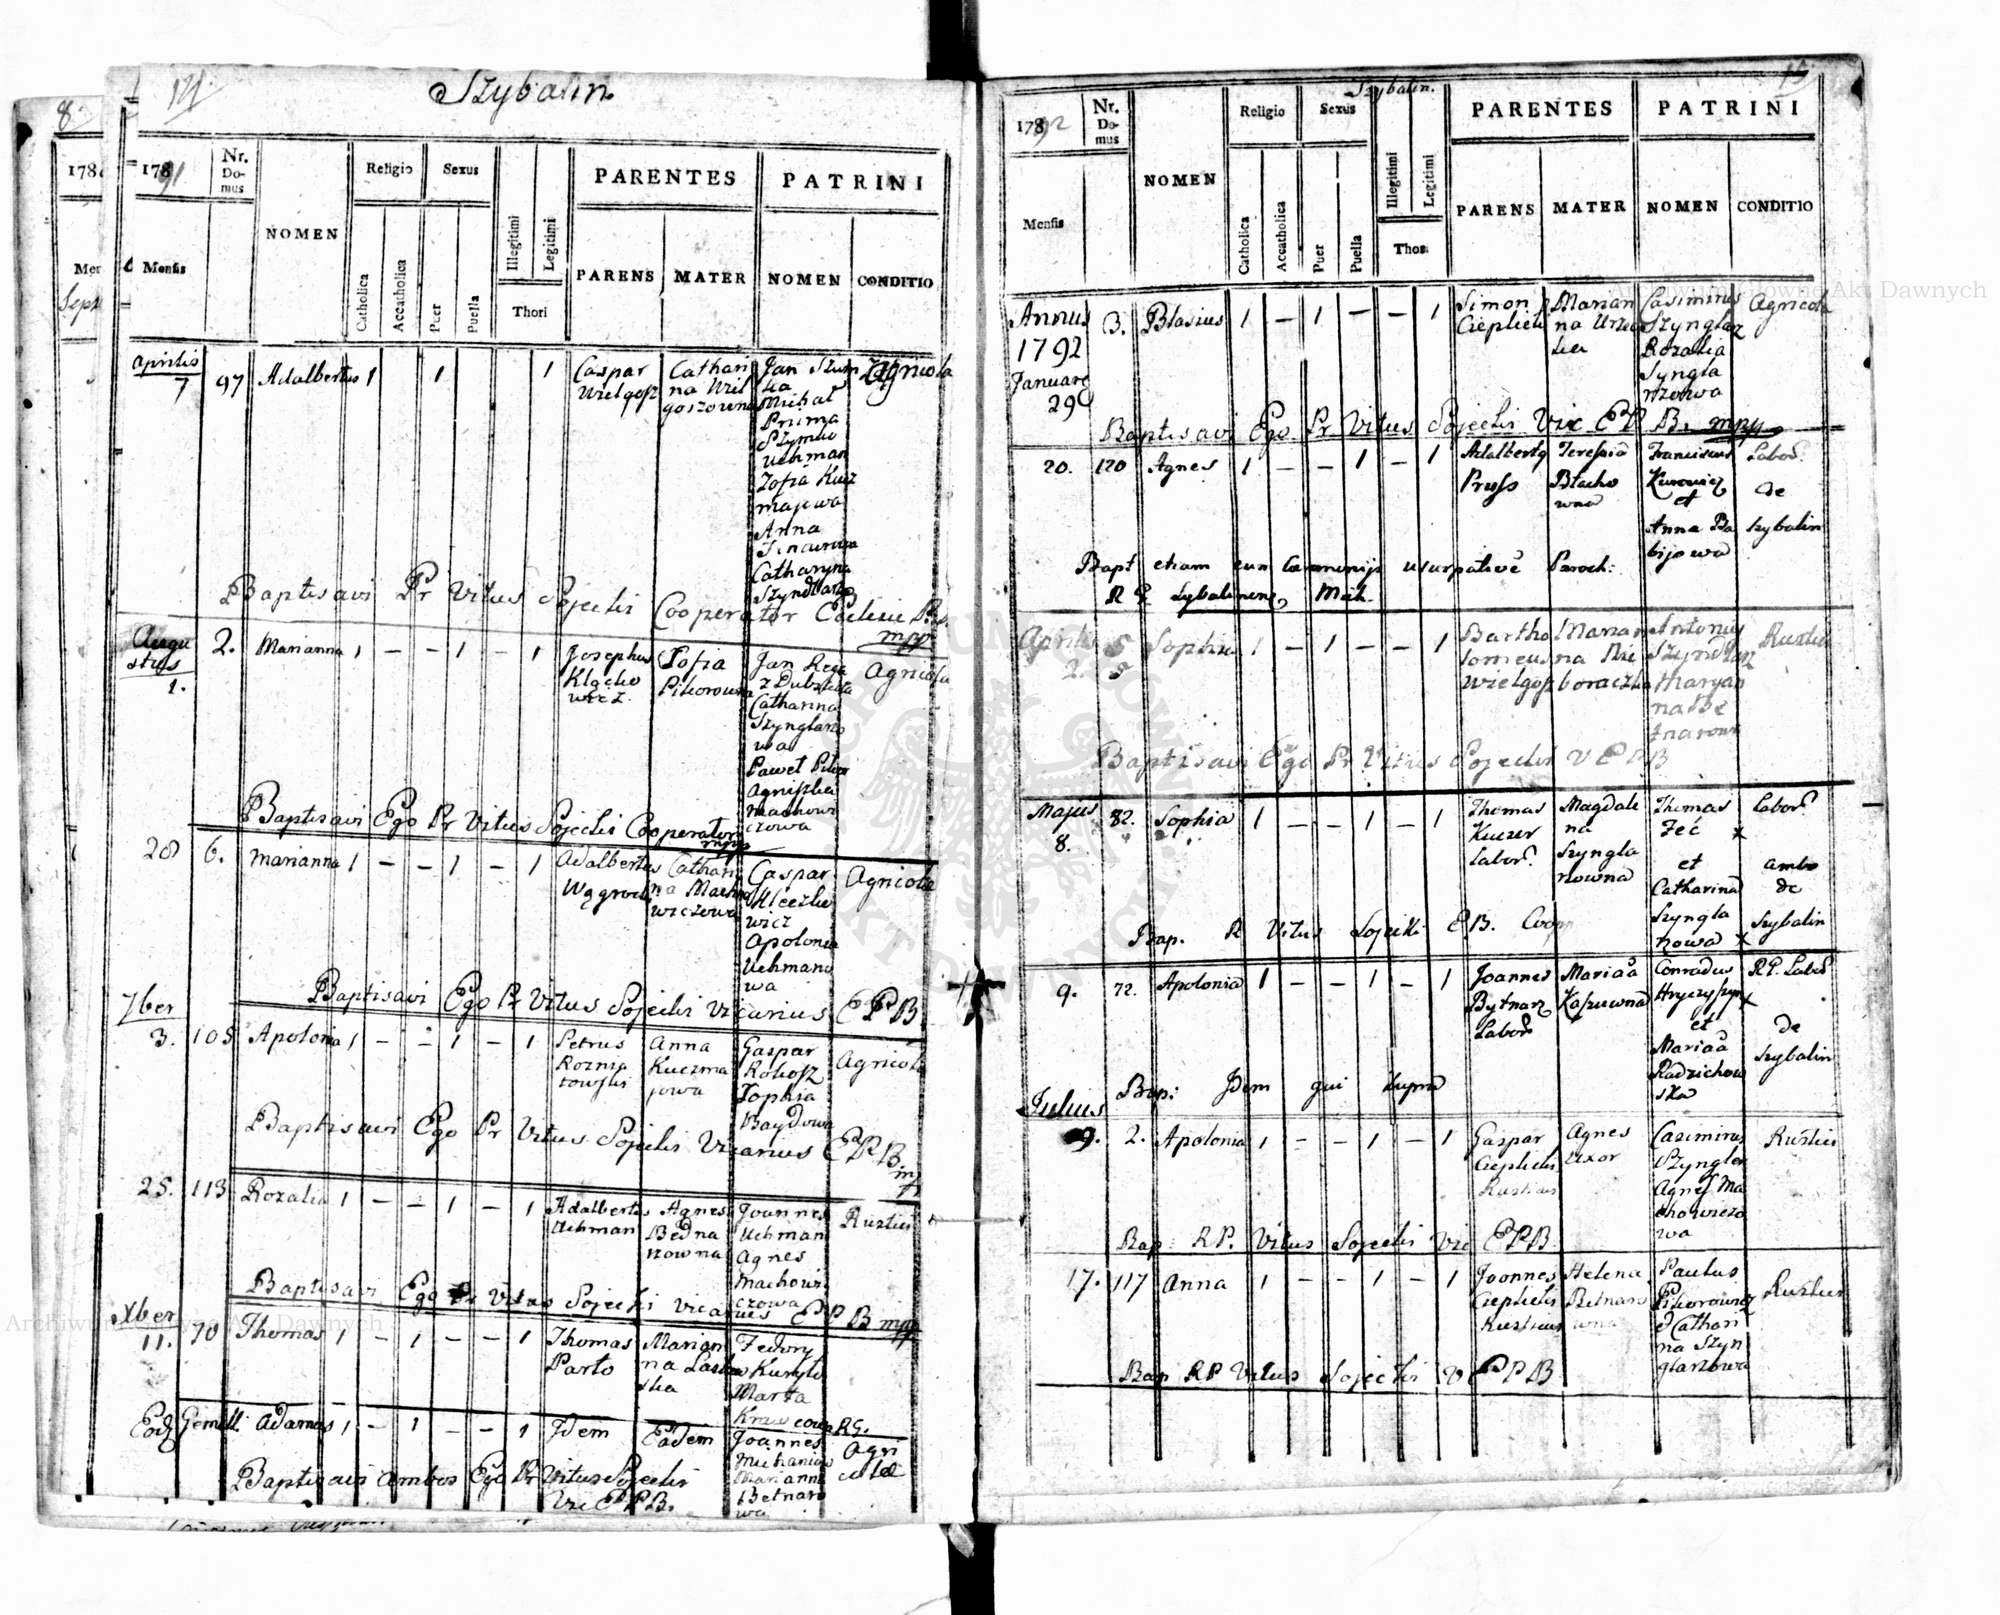 8.
14.
Szybalin.
178
Septe
1791
Nr. Domus
NOMEN
Religio
Sexus
PARENTES
PATRINI
Mensis
Catholica
Accatholica
Puer
Puella
Illegitimi
Legitimi
Thori
PARENS
MATER
NOMEN
CONDITIO
Aprilis
7
97
Adalbertus
1
1
1
Caspar
Wielgosz
Cathari
na Wiel
goszowna
Jan Szum
ska
Michał
Pruma
Szymko
Uchman
Zofia Kucz
majowa
Anna
Catharyna
Agricola
Baptisavi Pr Vitus Sojecki Cooperator
mpp
Augu
stus
1.
2.
Marianna
1 - - 1 - 1
Josephus
Klęcko
wicz
Zofia
Pikorowna
Jan Rega
z Dubszcza
Catharina
Szynglaro
wa
Paweł Piko
Agniszka
Machowi
czowa
Agricola
Baptisavi Ego Pr Vitus Sojecki Cooperator
mpp
28
6.
Marianna
1 - - 1 - 1
Adalbertus
Cathari
na Macho
wiczowa
Caspar
Kleczko
wicz
Apolonia
Uchmano
wa
Agricola
Baptisavi Ego Pr Vitus Sojecki Vicarius EPB
7ber
3.
105
Apolonia
1 - - 1 - 1
Petrus
Roznia
towski
Anna
Kuczma
jowa
Gaspar
Rokosz
Zophia
Baydowa
Agricola
Baptisavi Ego Pr Vitus Sojecki Vicarius EPB
25.
113
Rozalia
1 - - 1 - 1
Adalbertus
Uchman
Agnes
Bedna
rowna
Joannes
Uchman
Agnes
Machowi
czowa
Rustici
Baptisavi Ego Pr Vitus Sojecki Vicarius EPB mpp
Xber
11.
70
Thomas
1 - 1 - - 1
Thomas
Parto
Marian
na Lasko
ska
Fedory
Kuryło
Marta
RG.
Gemelli
Adamus
1 - 1 - - 1
Idem
Eadem
Joannes
Marianna
Betnaro
wa
Agri
colae
Baptisavi ambos Ego Pr Vitus Sojecki
Vic EPB.
15.
Szybalin.
1792
Nr. Domus
NOMEN
Religio
Sexus
PARENTES
PATRINI
Mensis
Catholica
Accatholica
Puer
Puella
Illegitimi
Legitimi
Thori
PARENS
MATER
NOMEN
CONDITIO
Annus
1792
Januarÿ
29
3.
Blasius
1 - 1 - - 1
Simon
Cieplicki
Marian
na
Casimirus
Szynglarz
Rozalia
Syngla
rzowa
Agricola
Baptisavi Ego Pr Vitus Sojecki Vic EP B. mpp
20.
120
Agnes
1 - - 1 - 1
Adalbertg
Pruss
Teressia
Błacho
wna
Franciscus
Kurowicz
et
Anna Ba
bijowa
Labor.
de
Szybalin
Bapt etiam cum Caeremonijs usurpative Paroch:
R G. Sybalinens,
Aprilis
2.
5
Sophia
1 - 1 - - 1
Bartho
lomeus
Wielgosz
Marian
na
Antonius
Szynglarz
Maryan
na
Rustici
Baptisavi Ego Pr Vitus Sojecki V EPB
Majus
8.
82.
Sophia
1 - - 1 - 1
Thomas
Kuczer
Labor.
Magdale
na
Szyngla
rowna
Thomas
Féć
et
Catharina
Szyngla
rowa
Labor.
ambo
de
Szybalin
Bap. R Vitus Sojecki EB. Coop
9.
72.
Apolonia
1 - - 1 - 1
Joannes
Bytnarz
Labor
Marianna
Kaszuwna
Conradus
Hryczyszyn
et
Marianna
Radzichow
ska
RG. Labor
de
Szybalin
Bap: Idem qui supra
Julius
9.
2.
Apolonia
1 - - 1 - 1
Gaspar
Cieplicki
Rusticus
Agnes
Uxor
Casimirus
Szynglar
Agnes Ma
chowiczo
wa
Rustici
Bap RP. Vitus Sojecki Vic EPB
17.
117
Anna
1 - - 1 - 1
Joannes
Cieplicki
Rusticus
Helena
Betnaro
wna
Paulus
Pikorowicz
et Cathari
na Szyn
glarzowa
Rustici
Bap RP Vitus Sojecki V EPB
Archiwum Główne Akt Dawnych